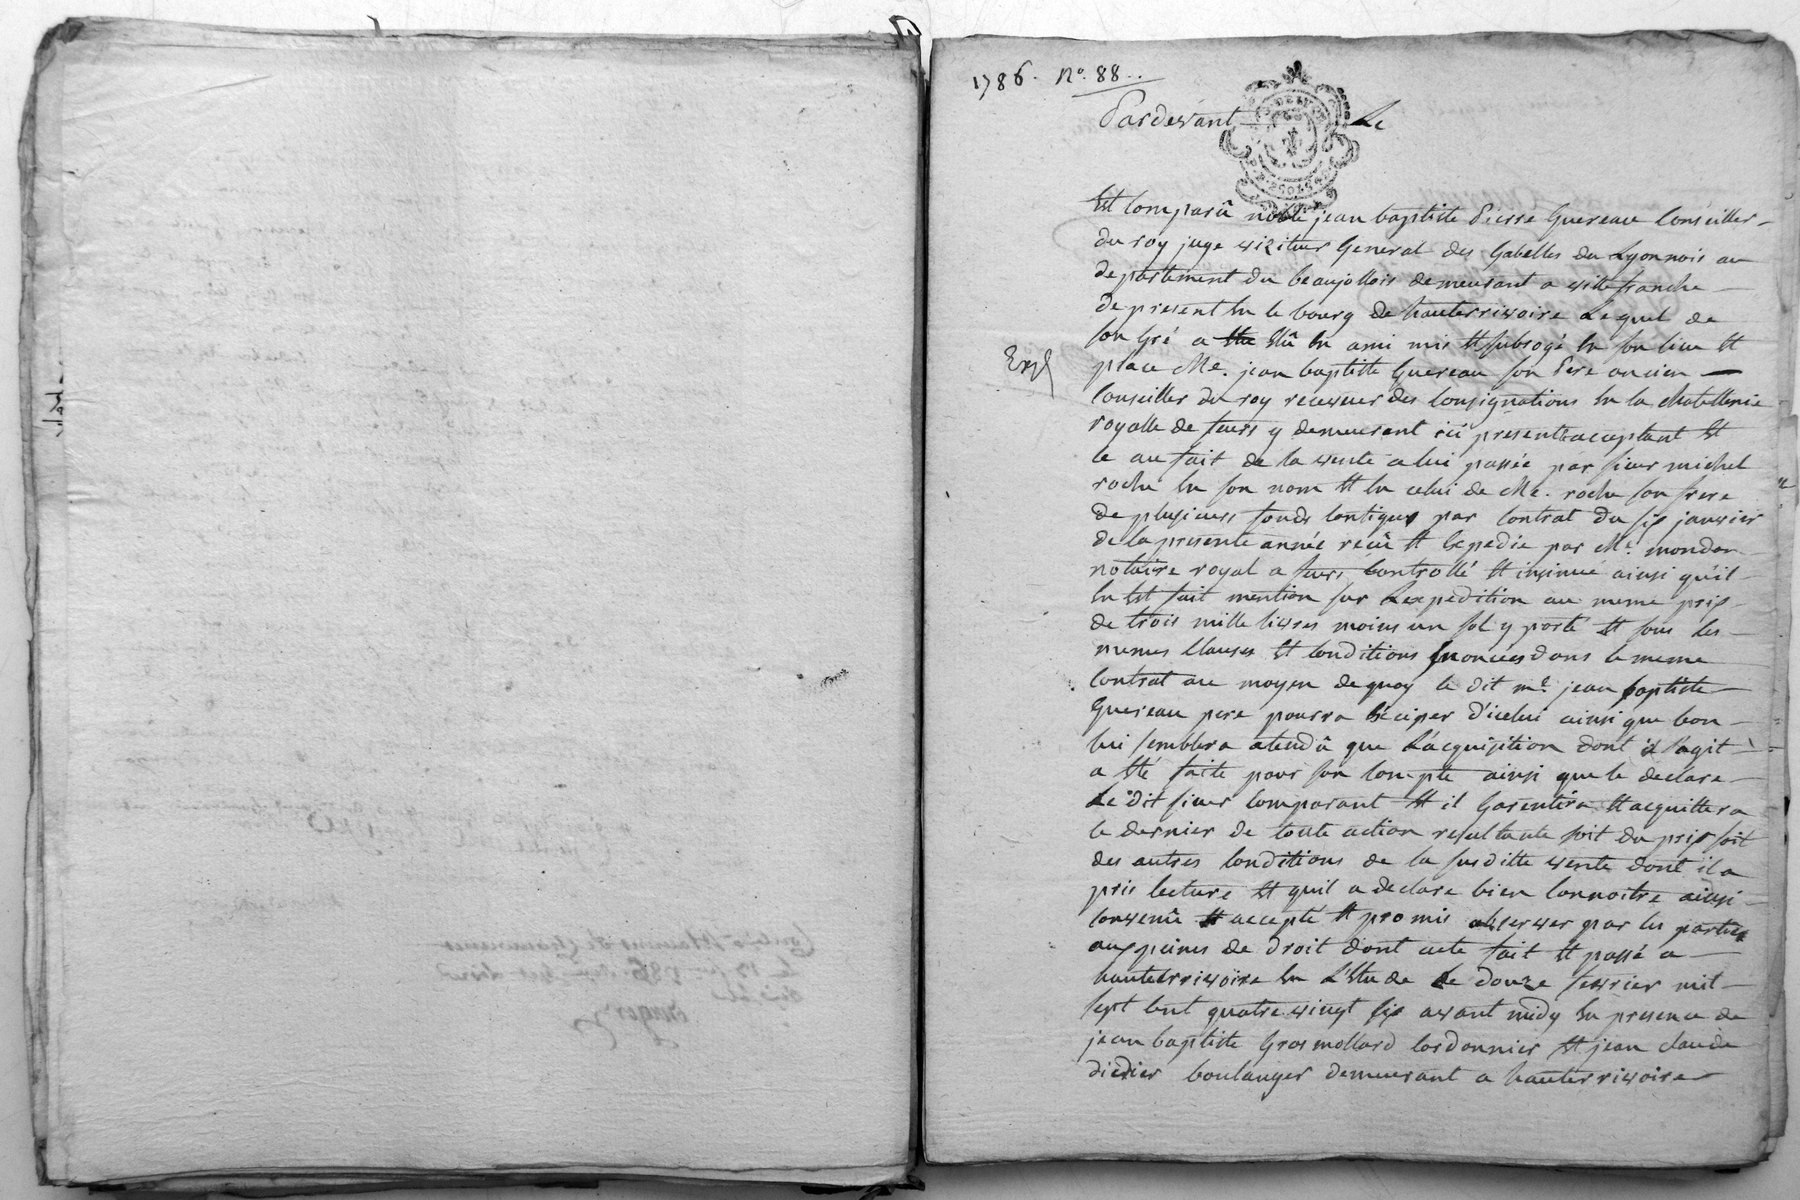 1786. No. 88..
Pardevant Le
Est Comparû noble jean baptiste Pierre Guereau Conseiller
du roy juge viziteur General des Gabelles du Lyonnois au
departement du beaujollois demeurant a villefranche
de present En le bourg de hauterrivoire Lequel de
son Gré a Elû En ami mis Et subrogé En son lieu Et
Exp
place Me. jean baptiste Guereau son Pere ancien
Conseiller du roy receveur des Consignations En la chatellenie
royalle de feurs y demeurant ici present acceptant Et
ce au fait de la vente a lui passée par sieur michel
roche En son nom Et En celui de Me. roche son frere
de plusieurs fonds Contigus par Contrat du six janvier
de la presente année recû Et Expedie par Me. mondon
notaire royal a feurs Controllé Et insinué ainsi qu'il
En Est fait mention sur L'expedition au meme prix
de trois mille livres moins un sol y porté Et sous les
memes Clauses Et Conditions Enoncées dans le meme
Contrat au moyen de quoy le dit me. jean baptiste
Guereau pere pourra d'iceluy ainsi que bon
lui semblera atendû que L'acquisition dont il s'agit
a Eté faite pour son Compte ainsi que le declare
Le dit sieur Comparant Et il Garentira Et acquittera
le dernier de toute action resultante soit du prix soit
des autres Conditions de la susditte vente dont il a
pris lecture Et quil a declare bien Connoitre ainsi
Convenû Et accepté Et promis observer par les parties
aux peines de droit dont acte fait Et passé a
hauterrivoire En L'Etude Le douze fevrier mil
sept Cent quatre vingt six avant midy En presence de
jean baptiste Grosmollard Cordonnier Et jean claude
didier boulanger demeurant a hauterrivoire